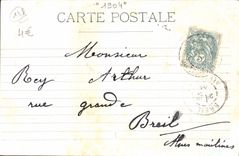 "1904"
4€
CARTE POSTALE
Monsieur
Rey Arthur
rue grande
Breil
Alpes maritimes